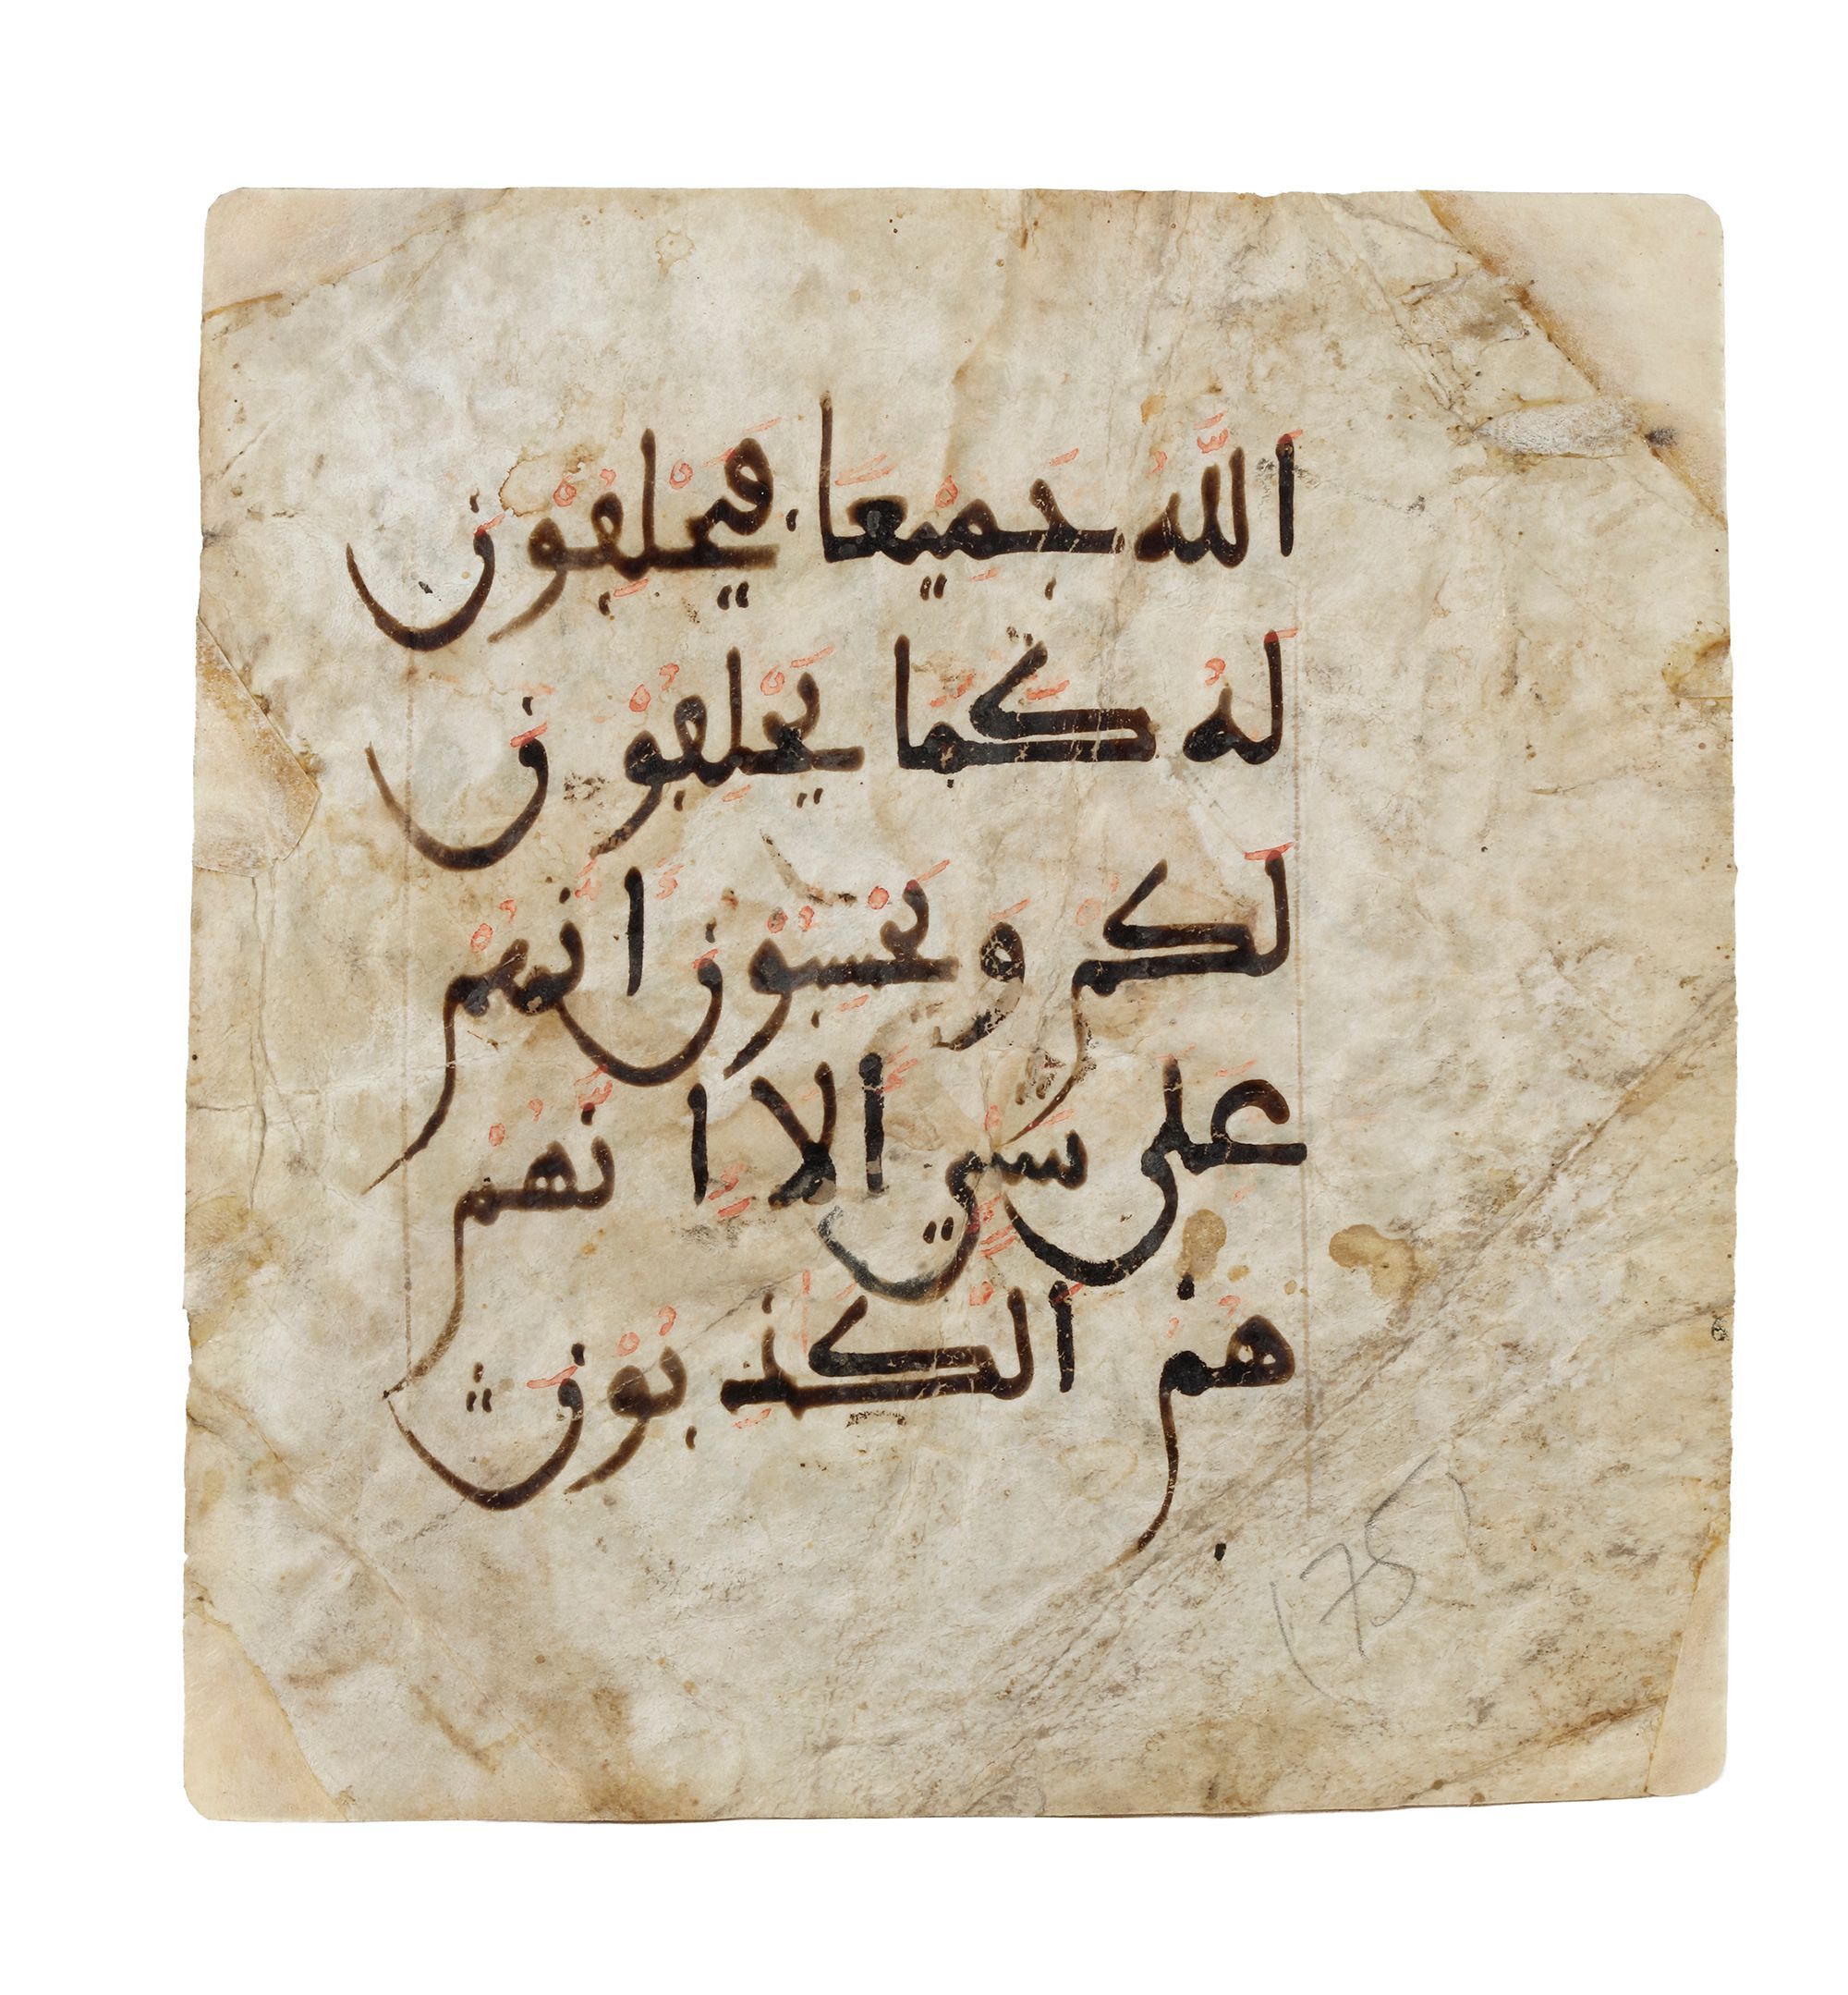 الله جَمِيعَا فَيَحْلِڢُونَ
لَهُۥ كَمَا يَحْلِڢُونَ
لَكُمْ وَيَحْسِبُونَ أَنَّهُمْ
عَلَىٰ شَيْءٍ أَلَا إِنَّهُمْ
هُمُ الْكَٰذِبُونَ
175